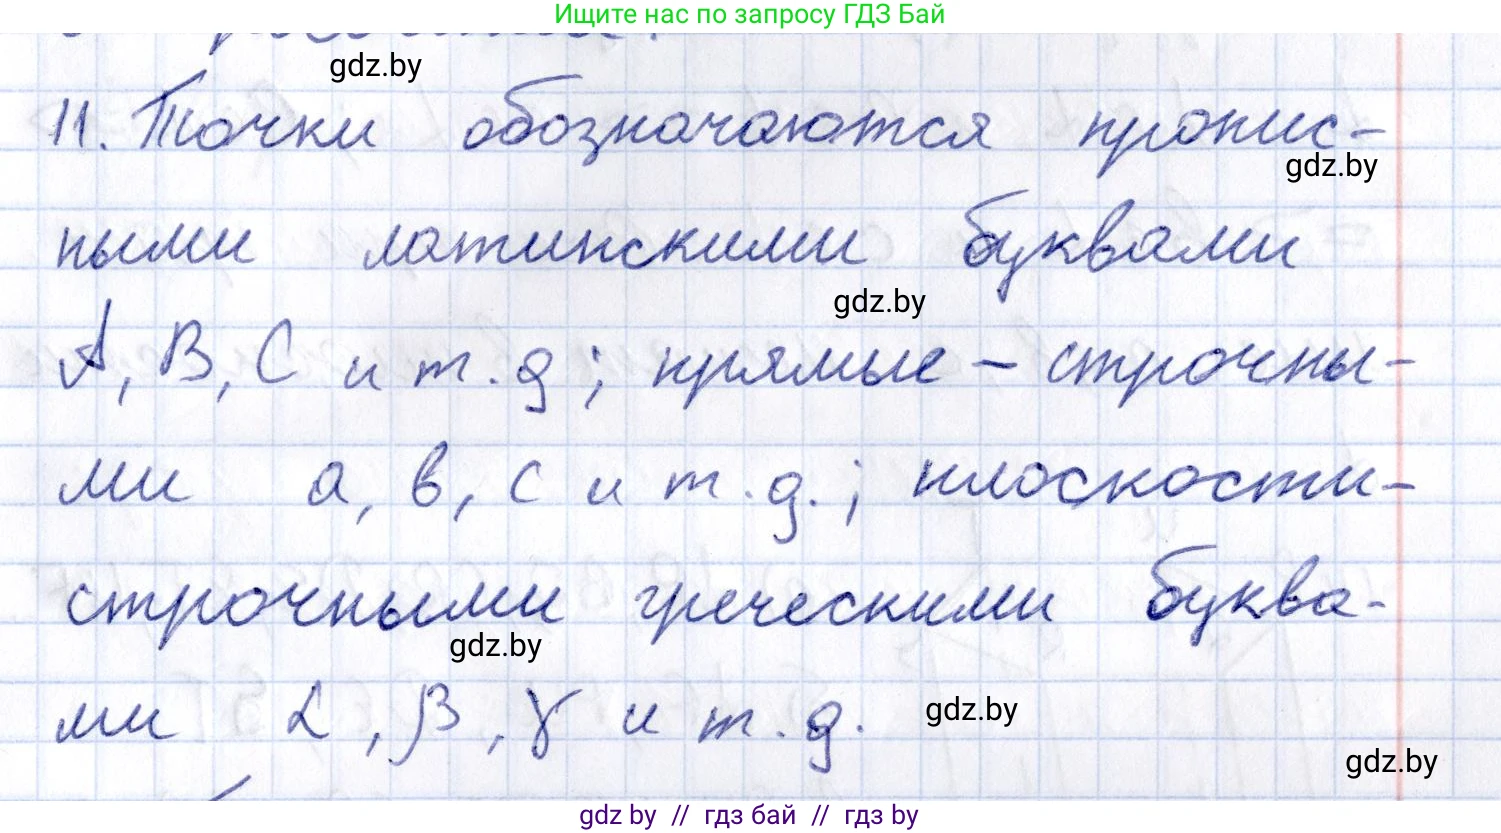 Ищите нас по запросу ГДЗ Бай
gdz.by
11. Точки обозначаются пропис-
gdz.by
ными латинскими буквами
gdz.by
A, B, C и т.д; прямые – строчны-
ми a, b, c и т.д.; плоскости-
строчными греческими буква-
gdz.by
ми α, β, γ и т.д.
gdz.by
gdz.by
gdz by // гдз бай // гдз by